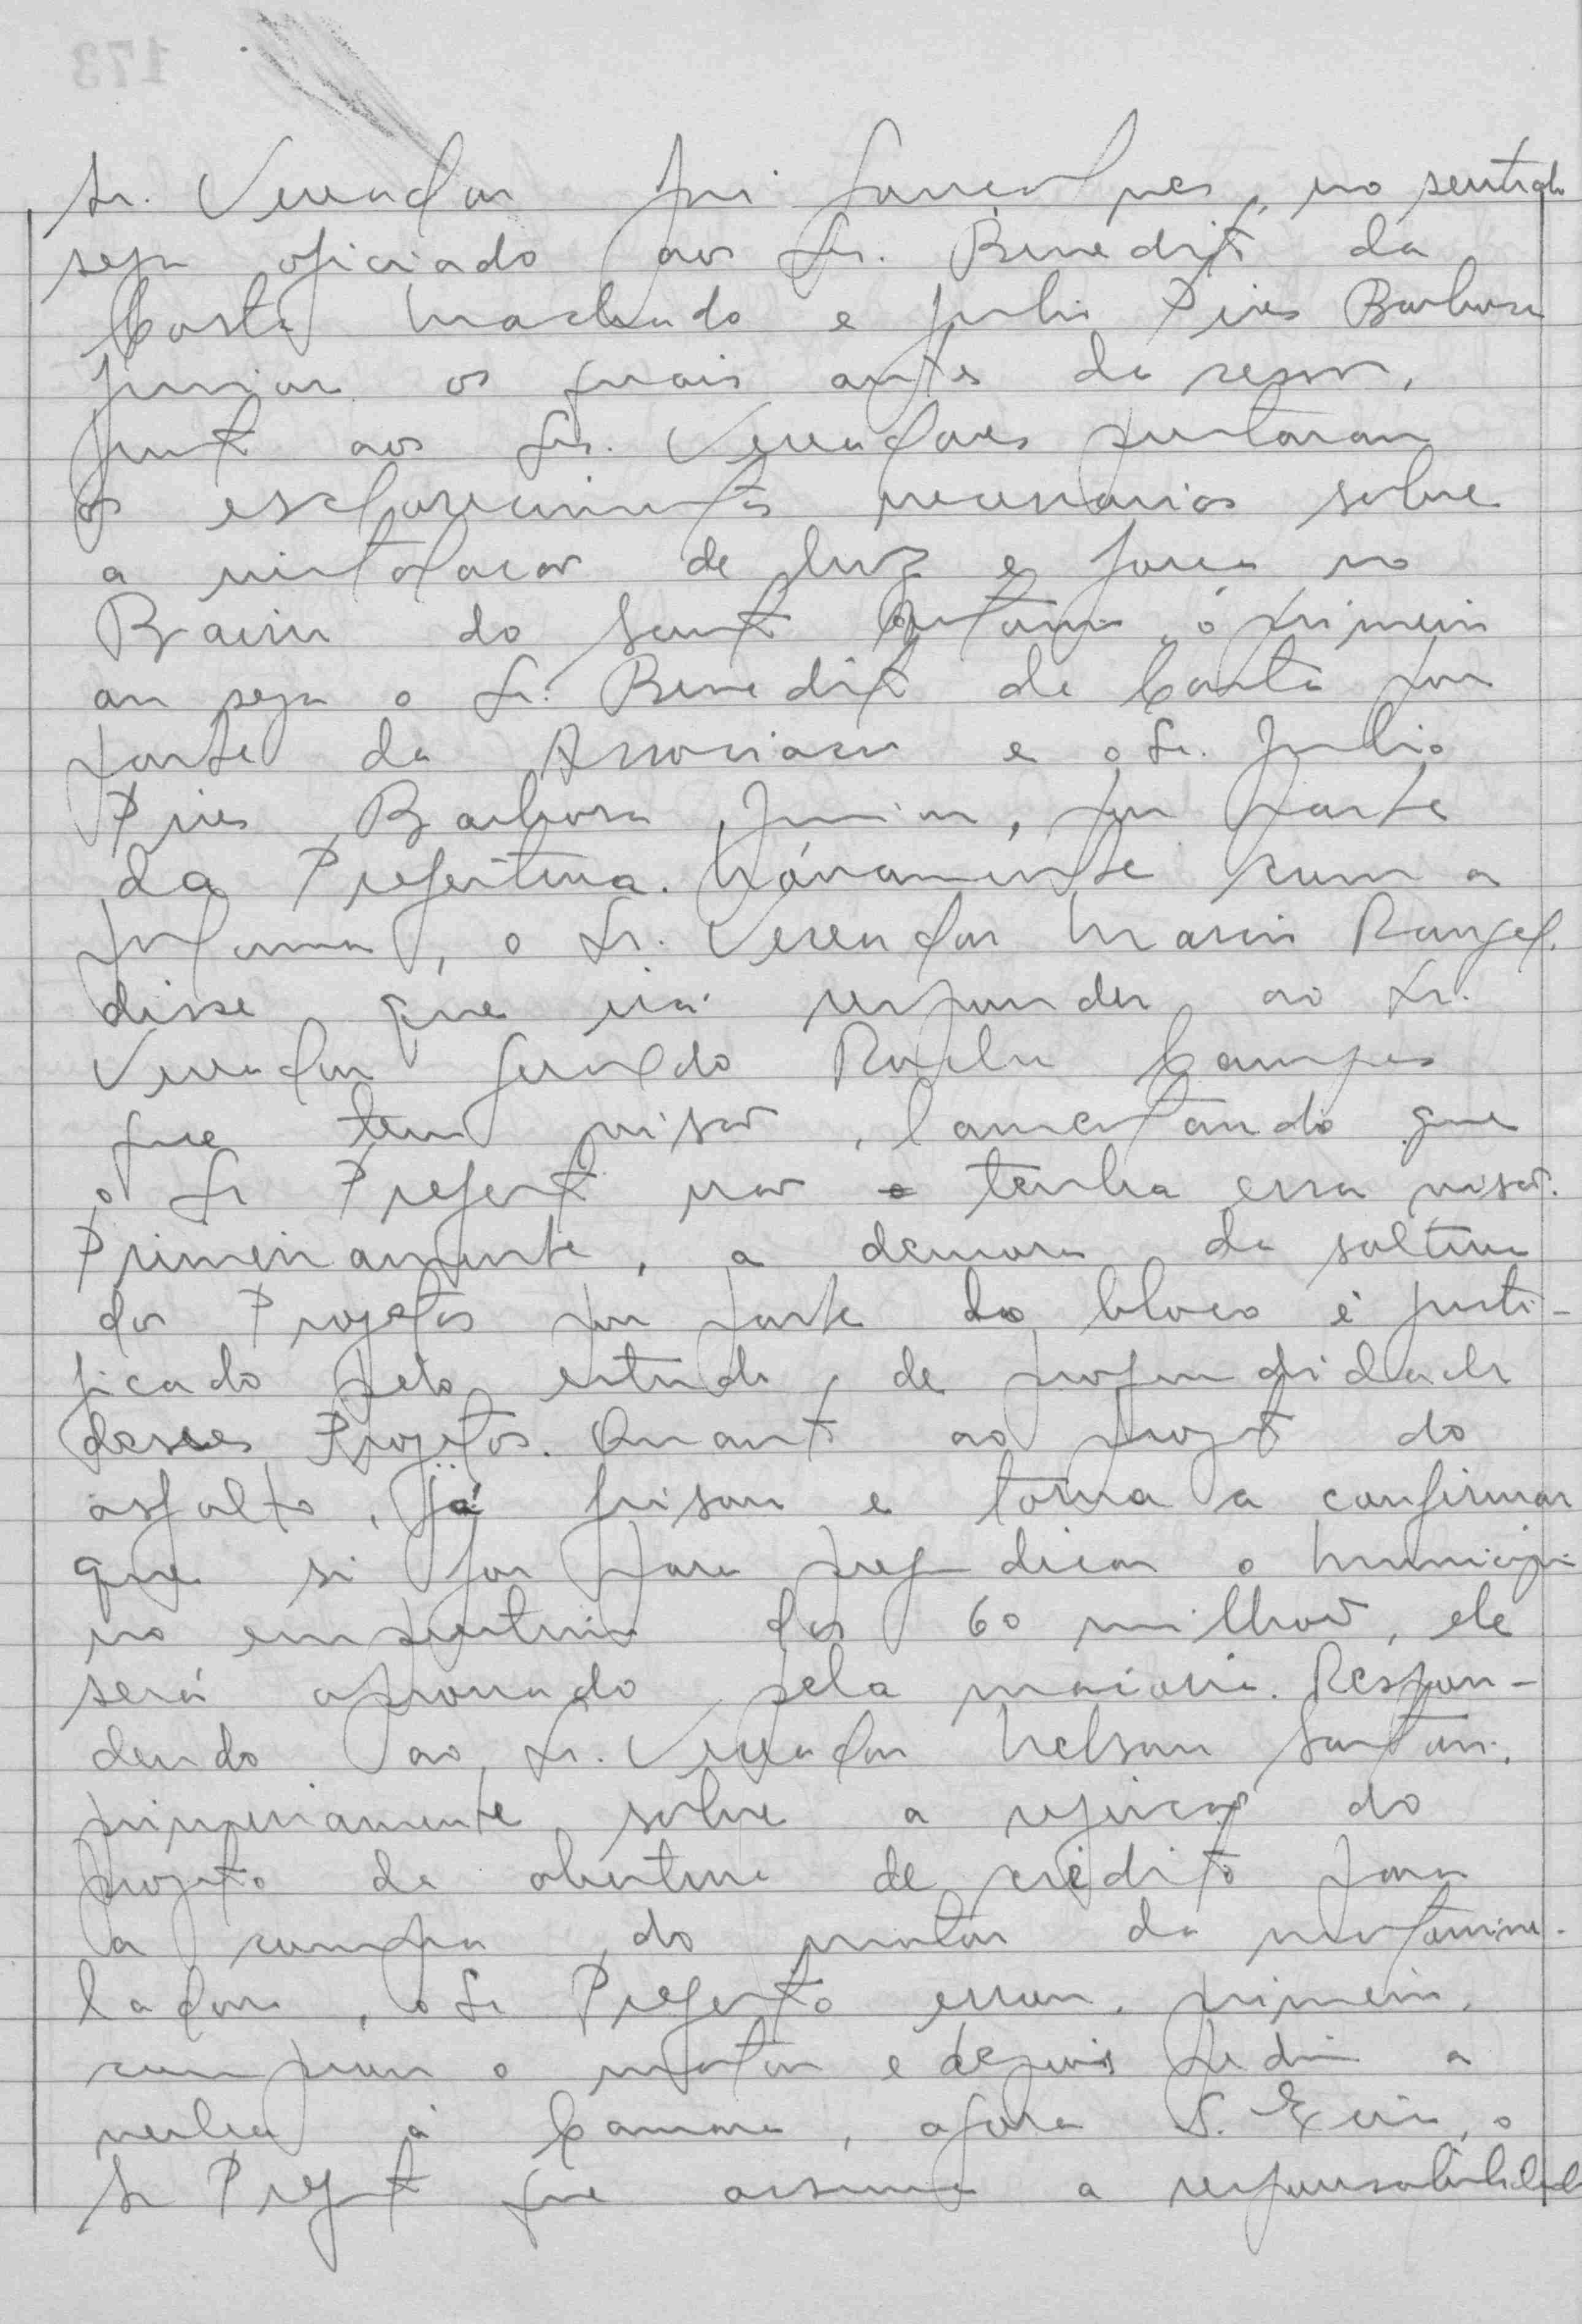 Sr. Vereador Jui Gonçalves, no sentido
seja oficiado aos Srs. Benedito da
Costa Machado e Julio Pires Barbosa
Junior os quais antes da sessão,
junto aos Srs. Vereadores prestaram
os esclarecimentos necessarios sobre
a instalação de luz e força no
Bairro do Santo Antonio, o primeiro
ou seja o Sr. Benedito da Costa por
parte da Associação e o Sr. Julio
Pires Barbosa Junior, por parte
da Prefeitura. Novamente com a
palavra, o Sr. Vereador Mario Rangel.
disse que irá responder ao Sr.
Vereador Geraldo Rocha Campos
que tem visão, lamentando que
o Sr Prefeito não tenha essa visão.
Primeiramente, a demora da soltura
dos Projetos por parte do bloco é justi-
ficado pelo estudo, de profundidade
desses Projetos. Quanto ao projeto do
asfalto, já frisou e torna a confirmar
que si for para prejudicar o Municipio
no emprestimo dos 60 milhões, ele
será aprovado pela maioria. Respon-
dendo ao Sr. Vereador Nelson Santoni,
primeiramente sobre a rejeição do
projeto de abertura de crédito para
a compra do motor da motonive-
ladora, o Sr Prefeito errou, primeiro,
comprou o motor e depois pediu a
verba á Camara, agora S. Excia, o
Sr Prefeito que assuma a responsabilidade